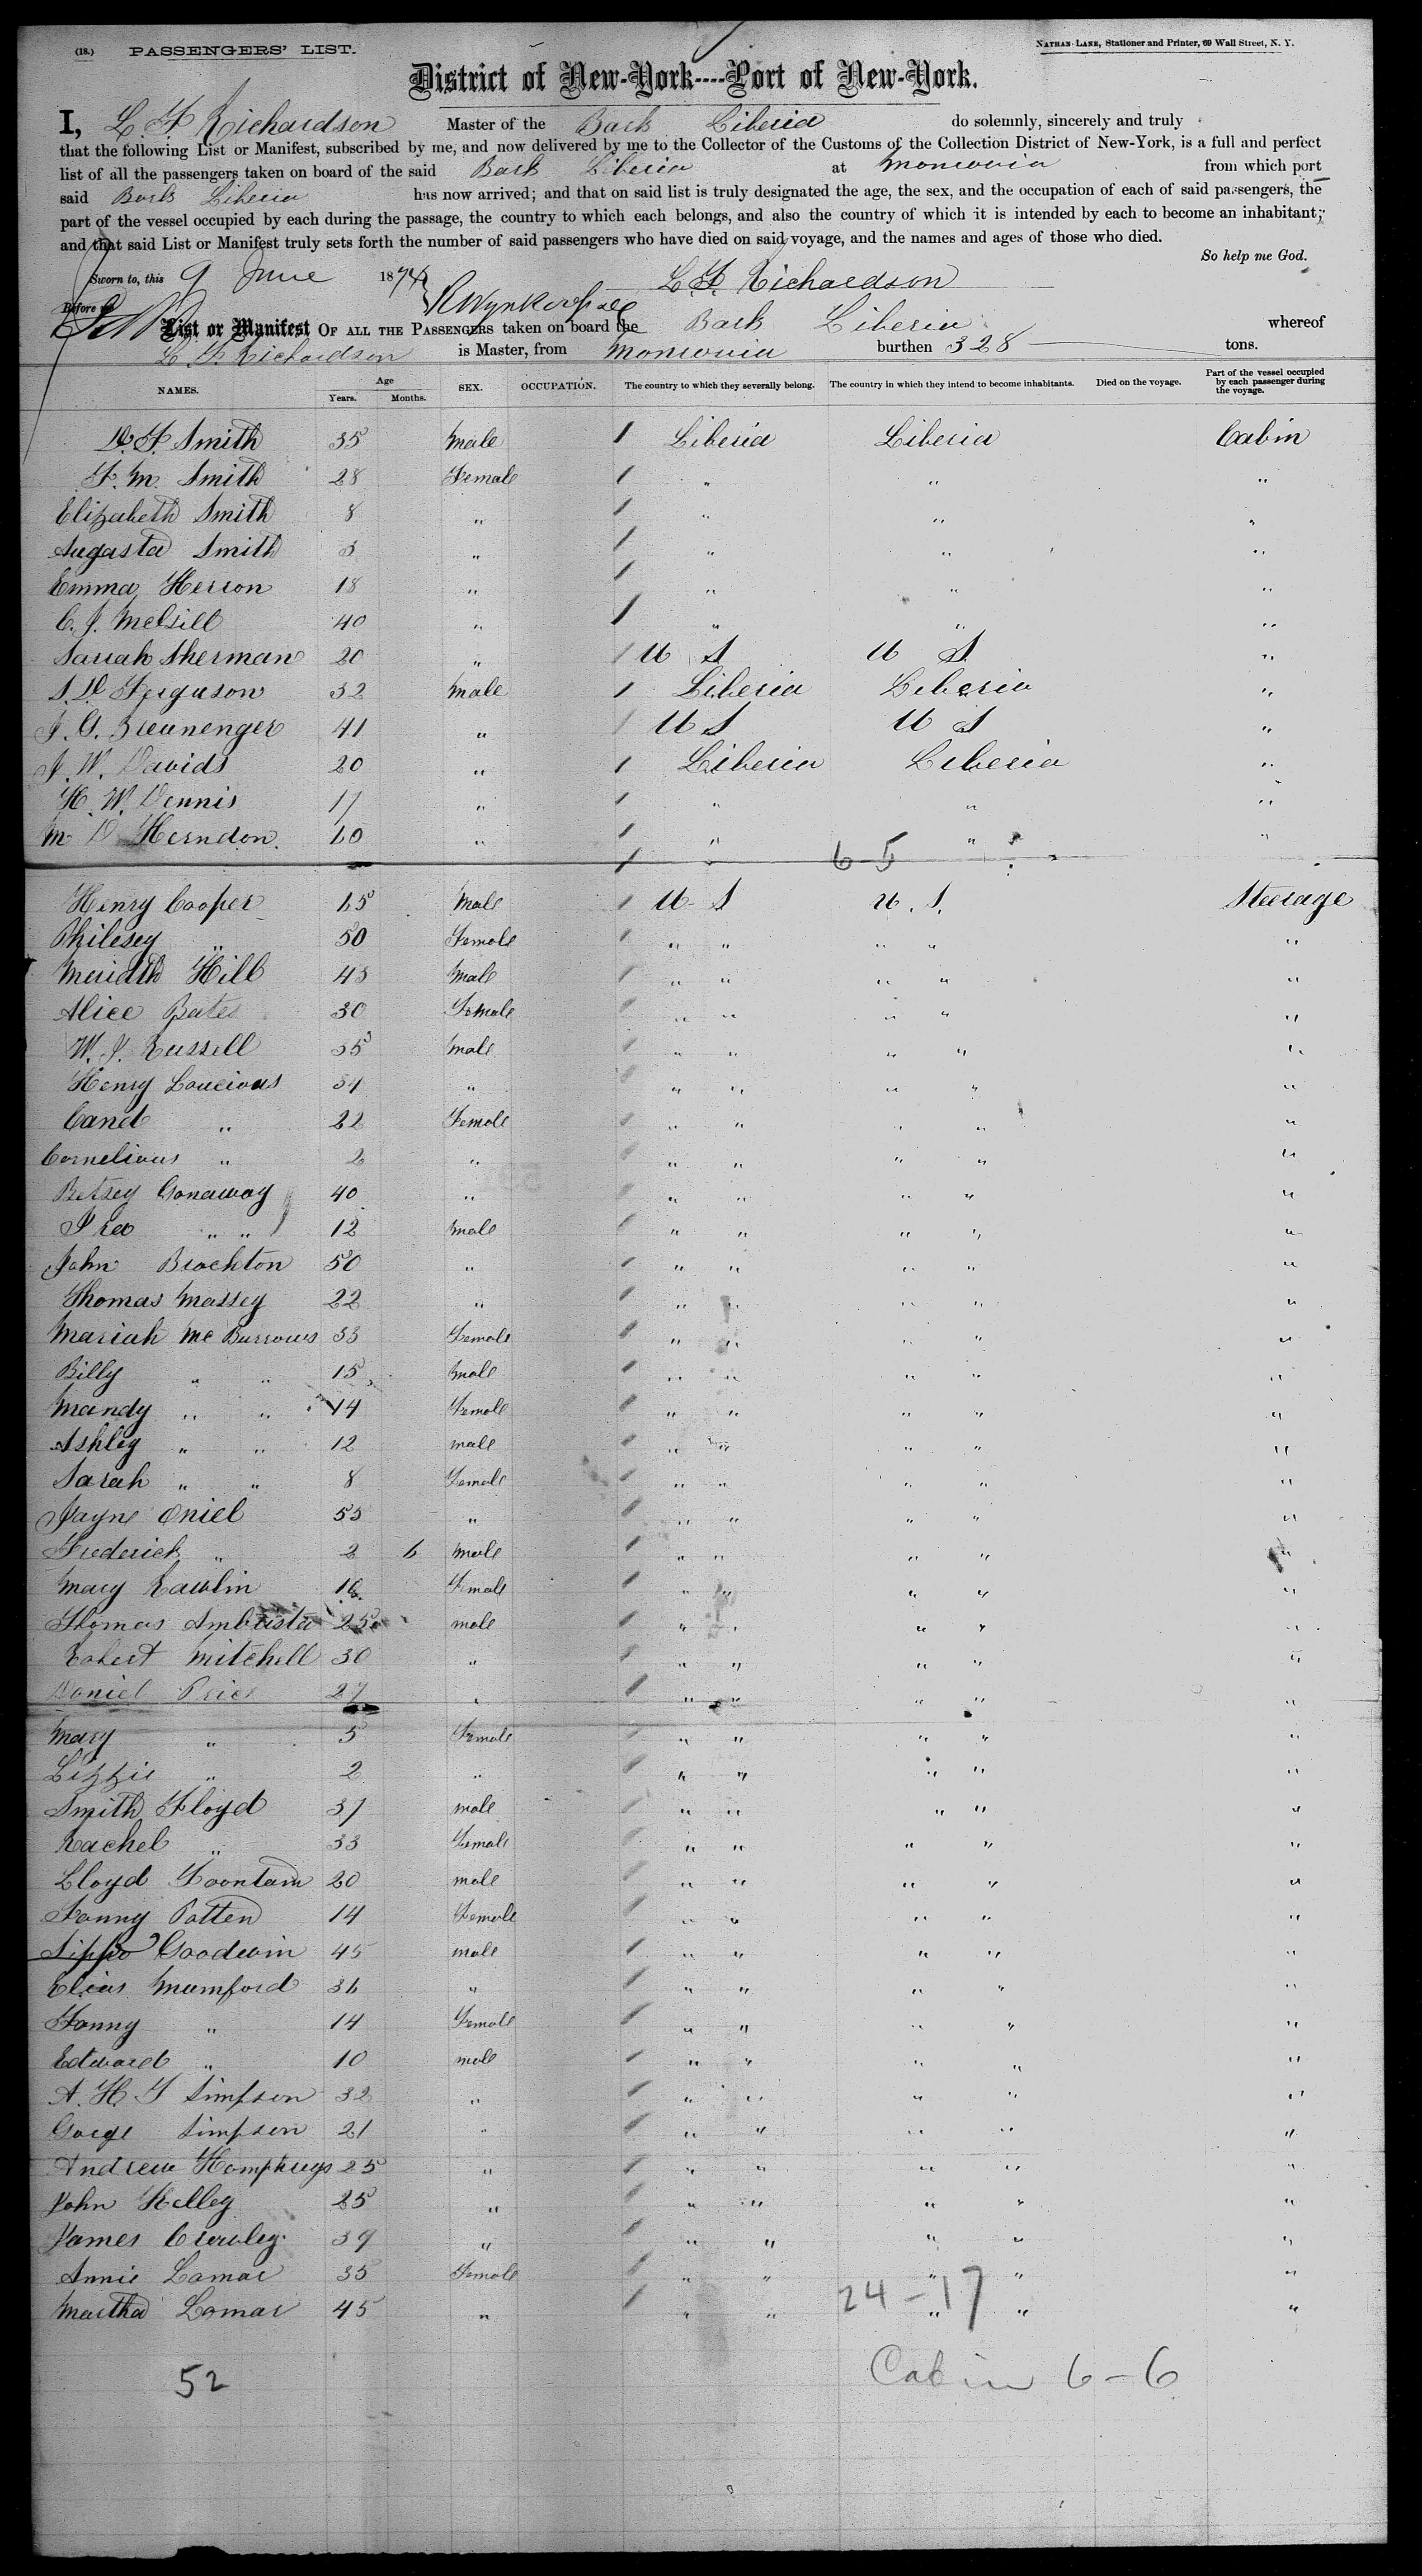 (18.) PASSENGERS' LIST. NATHAN LANE, Stationer and Printer, 69 Wall Street, N. Y.
District of New-York----Port of New-York.
I, L F Richardson Master of the Bark Liberia do solemnly, sincerely and truly
that the following List or Manifest, subscribed by me, and now delivered by me to the Collector of the Customs of the Collection District of New-York, is a full and perfect
list of all the passengers taken on board of the said Bark Liberia at Monrovia from which port
said Bark Liberia has now arrived; and that on said list is truly designated the age, the sex, and the occupation of each of said passengers, the
part of the vessel occupied by each during the passage, the country to which each belongs, and also the country of which it is intended by each to become an inhabitant;
and that said List or Manifest truly sets forth the number of said passengers who have died on said voyage, and the names and ages of those who died.
So help me God.
Sworn to, this 9 June 1874 L. F. Richardson
Before me
List or Manifest OF ALL THE PASSENGERS taken on board the Bark Liberia whereof
L F Richardson is Master, from Monrovia burthen 328 tons.
NAMES. Age Years. Months. SEX. OCCUPATION. The country to which they severally belong. The country in which they intend to become inhabitants. Died on the voyage. Part of the vessel occupied by each passenger during the voyage.
D. F. Smith 35 male 1 Liberia Liberia Cabin
F. M. Smith 28 Female 1 " " "
Elizabeth Smith 8 " 1 " " "
Augasta Smith " 1 " " "
Emma Herron 18 " 1 " " "
C. J. 40 " 1 " " "
Sariah Sherman 20 " 1 U S U S "
S. D. Ferguson 32 male 1 Liberia Liberia "
J. G. 41 " 1 U S U S "
J. W. Davids 20 " 1 Liberia Liberia "
H. W. Dennis 17 " 1 " " "
M D Herndon 60 " 1 " " "
1 6-5
Henry Cooper 65 Male 1 U S U. S. Steerage
Philesey " 50 Female 1 " " " " "
Meridith Hill 43 male 1 " " " " "
Alice Bates 30 Female 1 " " " " "
W. J. Russell 35 male 1 " " " " "
Henry Loucious 34 " 1 " " " " "
Cand " 22 Female 1 " " " " "
Cornelious " 2 " 1 " " " " "
Betsey Gonaway 40 " 1 " " " " "
Ira " " 12 male 1 " " " " "
John Brockton 50 " 1 " " " " "
Thomas Massey 22 " 1 " " " " "
Mariah Mc Burrows 33 Female 1 " " " " "
Billy " " 15 male 1 " " " " "
Mandy " " 14 Female 1 " " " " "
Ashley " " 12 male 1 " " " " "
Sarah " " 8 Female 1 " " " " "
Jayne Oniel 55 " 1 " " " " "
Frederick " 2 6 male 1 " " " " "
Mary Rawlin 16 Female 1 " " " " "
Thomas 25 male 1 " " " " "
Robert Mitchell 30 " 1 " " " " "
Daniel Price 27 " 1 " " " " "
Mary " 5 Female " " " " "
Lizzie " 2 " " " " " "
Smith Floyd 37 male 1 " " " " "
Rachel " 33 Female 1 " " " " "
Lloyd Foontain 20 male 1 " " " " "
Fanny Patten 14 Female 1 " " " " "
Sippo Goodwin 45 male 1 " " " " "
Elias Mumford 36 " 1 " " " " "
Fanny " 14 Female 1 " " " " "
Edward " 10 male 1 " " " " "
A. H. T Simpson 32 " 1 " " " " "
Gorge Simpson 21 " 1 " " " " "
Andrew Homphreys 25 " 1 " " " " "
John Kelley 25 " 1 " " " " "
James Crowley 39 " 1 " " " " "
Annie Lamar 35 Female 1 " " " " "
Martha Lamar 45 " 1 " " " " "
24-17
52 Cabin 6-6